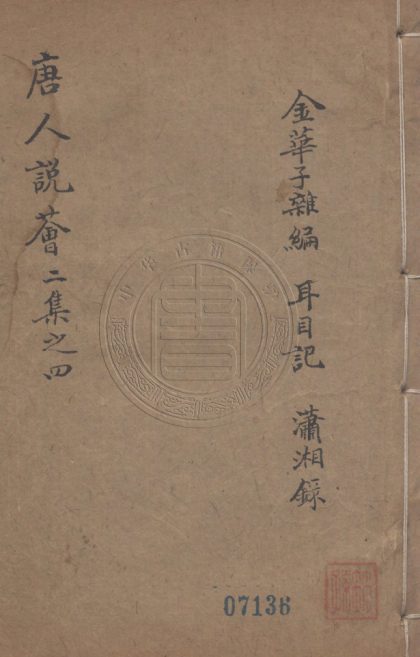 金華子雜編　耳目記　瀟湘錄
唐人説薈二集之四
07136